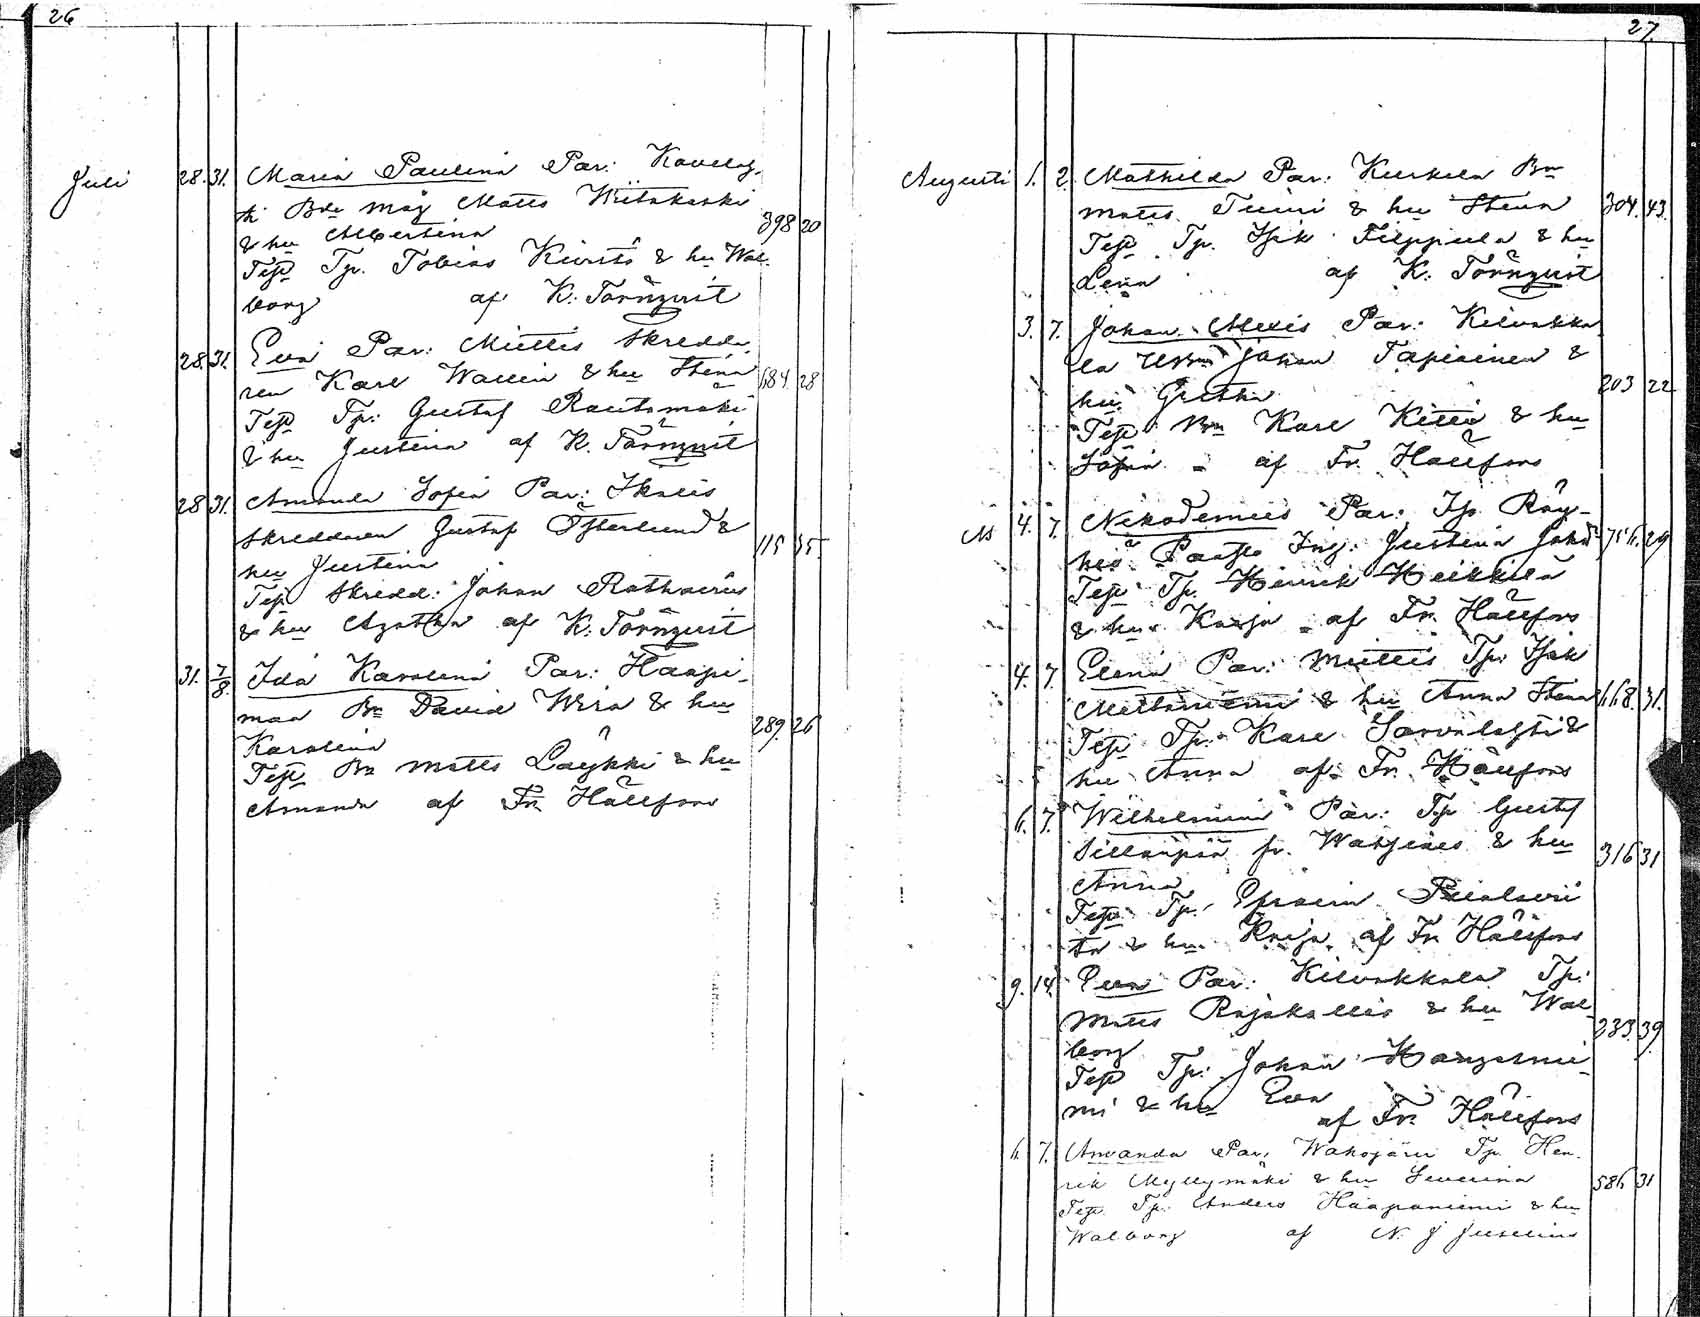 26
Juli 28. 31. Maria Paulina Par: Kovelax.
ti Bde måg Matts Wiitakoski
& hu Albertina 398 20
Test Tp. Tobias Kivistö & hu Wal-
borg af K. Törnqvist
28. 31. Eva Par: Miettis Skredda-
ren Karl Wallin & hu Stina 684 28
Test Tp: Gustaf Rautamäki
& hu Justina af K. Törnqvist
28 31. Amanda Sofia Par: Ikalis
Skreddaren Gustaf Österlund &
hu Justina 115 35
Test Skredd: Johan Rothoerus
& hu Agatha af K: Törnqvist
31. 7/8. Ida Karolina Par: Haapi-
maa Bn David Wira & hu
Karolina 289. 26
Test Bn Matts Löykki & hu
Amanda af Fr. Hållfors
27.
Augusti 1. 2. Mathilda Par: Kurkela Bn
Matts Tuuri & hu Stina 304. 43.
Test Tp. Isak Filppula & hu
Lena af K. Törnqvist
3. 7. Johan Alexis Par: Kilvakka
la Johan Tapiainen &
hu Gretha 203 22
Test Bn Karl Kitti & hu
Sofia af Fr. Hållfors
4. 7. Nikodemus Par: Ip. Röy-
hiö Paasso Inh: Justina Johsdr 756. 29
Test Tp. Henrik Heikkilä
& hu Kaisa af Fr. Hållfors
4. 7. Elena Par: Miettis Tp: Isak
Mettäniemi & hu Anna Stina 668. 31.
Test Tp. Karl Sarvilahti &
hu Anna af Fr. Hållfors
6. 7. Wilhelmina Par: Tp Gustaf
Sillanpää fr. Watjeais & hu 316 31
Anna
Test Tp. Efraim
ta & hu Kaisa af Fr. Hållfors
9. 14. Eva Par: Kilvakkala Tp:
Matts Rajakallio & hu Wal 233. 39
borg
Test Tp: Johan Kangasnie
mi & hu Eva
af Fr. Hållfors
6. 7. Amanda Par: Wahojärvi Tp. Hen-
rik Myllymäki & hu Severina 586 31
Test. Tp. Anders Haapaniemi & hu
Walborg af N. J Juselius